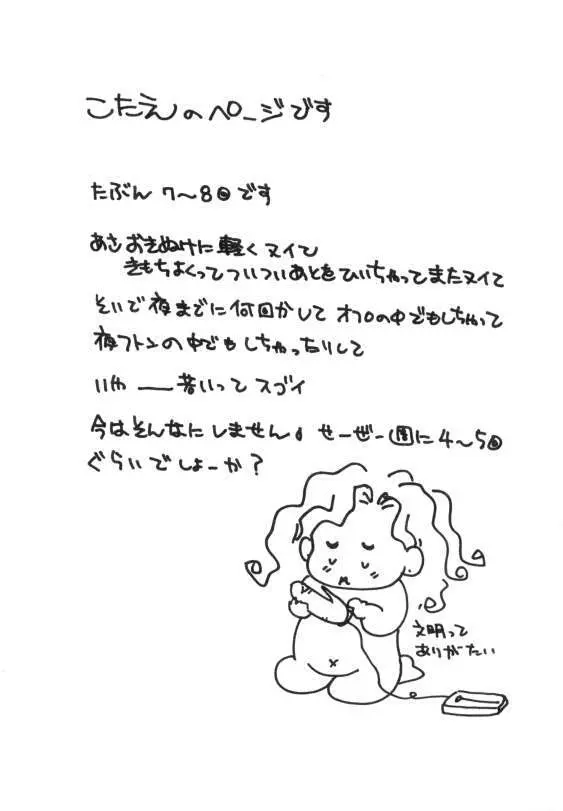 こたえのページです
たぶん 7〜8回です
あさおきぬけに軽くヌイて
きもちよくってついついあとをひいちゃってまたヌイて
そいで夜までに何回かして オフロの中でもしちゃって
夜フトンの中でもしちゃったりして
いやー若いってスゴイ
今はそんなにしません。せーぜー週に4〜5回
ぐらいでしょーか?
文明って
ありがたい